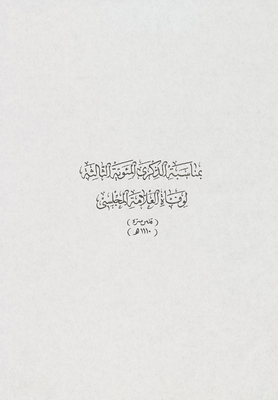 بمناسبة الذكرى المئوية الثالثة
لوفاة العلامة المجلسي
( قدس سره )
( ١١١٠ هـ )